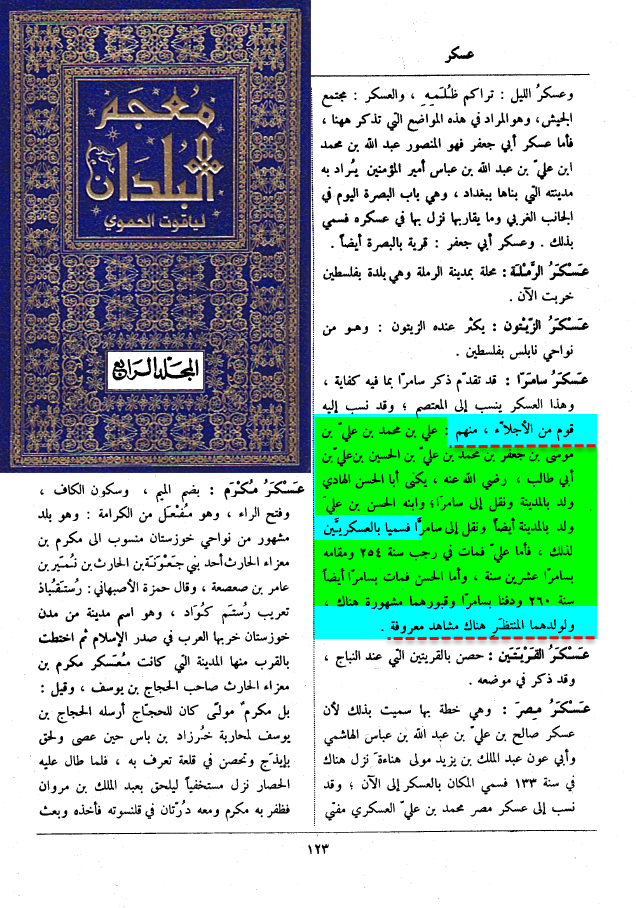 معجم
البلدان
لياقوت الحموي
المجلد الرابع
عسكر
وعسكرُ الليل : تراكم ظُلَمِهِ ، والعسكر : مجتمع
الجيش، وهو المراد في هذه المواضع التي تذكر ههنا ،
فأما عسكر أبي جعفر فهو المنصور عبد الله بن محمد
ابن عليّ بن عبد الله بن عباس أمير المؤمنين يُراد به
مدينته التي بناها ببغداد ، وهي باب البصرة اليوم في
الجانب الغربي وما يقاربها نزل بها في عسكره فسمي
بذلك . وعسكر أبي جعفر : قرية بالبصرة أيضاً .
عَسْكَرُ الرَّمْلَة : محلة بمدينة الرملة وهي بلدة بفلسطين
خربت الآن .
عَسْكَرُ الزّيْتون : يكثر عنده الزيتون : وهو من
نواحي نابلس بفلسطين .
عَسْكَرُ سامَرّا : قد تقدّم ذكر سامرّا بما فيه كفاية ،
وهذا العسكر ينسب إلى المعتصم ؛ وقد نسب إليه
قوم من الأجلاّء ، منهم : علي بن محمد بن عليّ بن
موسى بن جعفر بن محمد بن عليّ بن الحسين بن عليّ بن
أبي طالب ، رضي الله عنه ، يكنى أبا الحسن الهادي
ولد بالمدينة ونقل إلى سامرّا؛ وابنه الحسن بن عليّ
ولد بالمدينة أيضاً ونقل إلى سامرّا فسميا بالعسكريّين
لذلك ، فأما عليّ فمات في رجب سنة ٢٥٤ ومقامه
بسامرّا عشرين سنة ، وأما الحسن فمات بسامرّا أيضاً
سنة ٢٦٠ ودفنا بسامرّا وقبورهما مشهورة هناك ،
ولولدهما المنتظَر هناك مشاهد معروفة .
عَسْكَرُ القَرْيَتَين : حصن بالقريتين التي عند النباج ،
وقد ذكر في موضعه .
عَسْكَرُ مِصرَ : وهي خطة بها سميت بذلك لأن
عسكر صالح بن عليّ بن عبد الله بن عباس الهاشمي
وأبي عون عبد الملك بن يزيد مولى هناءة نزل هناك
في سنة ١٣٣ فسمي المكان بالعسكر إلى الآن ؛ وقد
نسب إلى عسكر مصر محمد بن عليّ العسكري مفتي
عَسْكَرُ مُكْرَم : بضم الميم ، وسكون الكاف ،
وفتح الراء ، وهو مُفْعَل من الكرامة : وهو بلد
مشهور من نواحي خوزستان منسوب الى مكرم بن
معزاء الحارث أحد بني جَعْوَنَة بن الحارث بن نُمير بن
عامر بن صعصعة ، وقال حمزة الأصبهاني : رُستَقُباذ
تعريب رُستَم كُوَاد ، وهو اسم مدينة من مدن
خوزستان خربها العرب في صدر الإسلام ثم اختطت
بالقرب منها المدينة التي كانت مُعسكر مكرم بن
معزاء الحارث صاحب الحجاج بن يوسف ، وقيل :
بل مكرمٌ مولًى كان للحجّاج أرسله الحجاج بن
يوسف لمحاربة خُرزاد بن باس حين عصى ولحق
بإيذَج وتحصن في قلعة تعرف به ، فلما طال عليه
الحصار نزل مستخفياً ليلحق بعبد الملك بن مروان
فظفر به مكرم ومعه دُرّتان في قلنسوته فأخذه وبعث
١٢٣